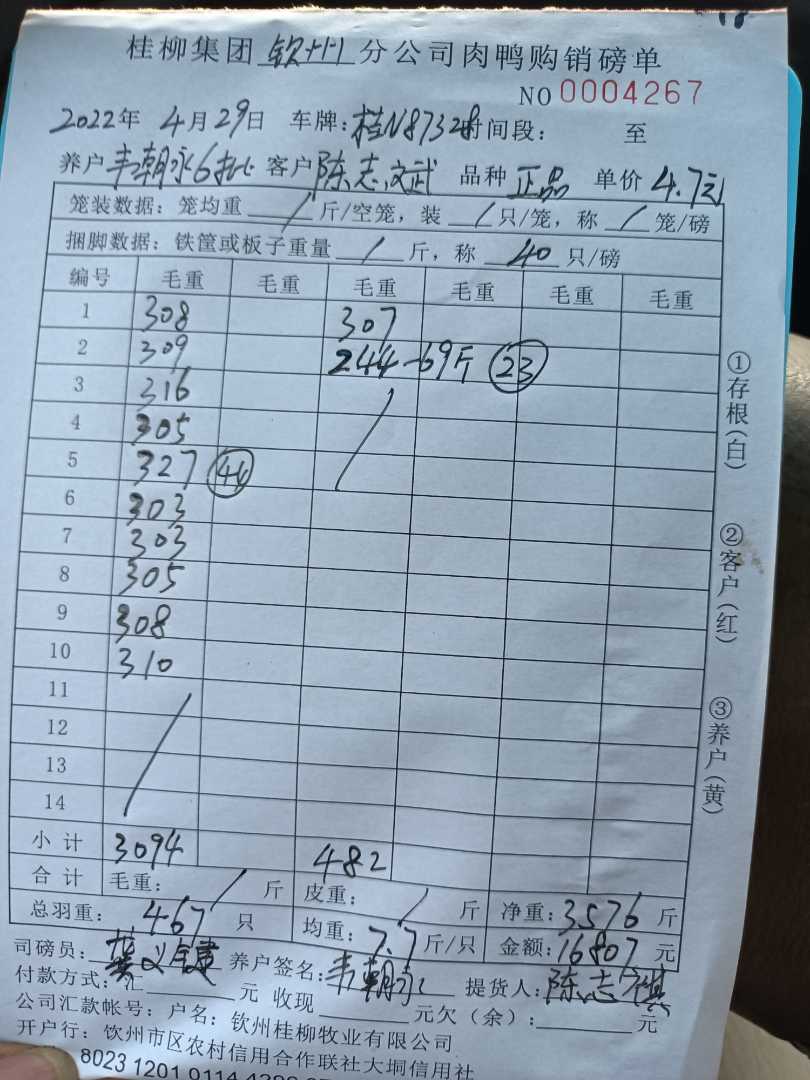 桂柳集团 钦州 分公司肉鸭购销磅单
NO 0004267
2022年 4月29日 车牌:桂N87328 时间段: 至
养户 韦朝永6批 客户 陈志武 品种 正品 单价 4.7元
笼装数据:笼均重 / 斤/空笼,装 / 只/笼,称 / 笼/磅
捆脚数据:铁筐或板子重量 / 斤,称 40 只/磅
编号 毛重 毛重 毛重 毛重 毛重 毛重
1 308 307
2 309 244-69斤 (23)
3 316
4 305
5 327 (44)
6 303
7 303
8 305
9 308
10 310
11
12
13
14
小计 3094 482
合计 毛重: / 斤 皮重: / 斤 净重:3576 斤
总羽重: 467 只 均重:7.7斤/只 金额:16807元
司磅员: 养户签名:韦朝永 提货人:陈志
付款方式:汇 元 收现 元欠(余): 元
公司汇款帐号:户名:钦州桂柳牧业有限公司
开户行:钦州市区农村信用合作联社大垌信用社
8023 1201 0114
①存根(白)
②客户(红)
③养户(黄)